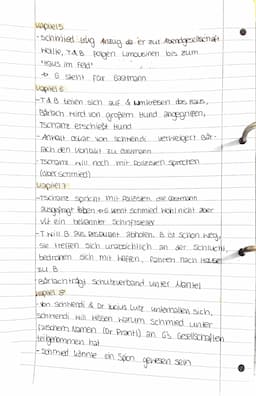 Kapitel 5
- Schmied trug Anzug da er zur Abendgesellschaft
wollte, T&B folgen Limousinen bis zum
"Haus im Feld"
→ G steht für Gastmann
Kapitel 6
- T&B teilen sich auf & umkreisen das Haus,
Bärlach wird von großem Hund angegriffen,
Tschanz erschießt Hund
- Anwalt Oskar von Schwendi verweigert Bär-
lach den Kontakt zu Gastmann
- Tschanz will noch mit Polizisten sprechen
(über Schmied)
Kapitel 7
- Tschanz spricht mit Polizisten die Gastmann
ausgefragt haben → G kennt Schmied wohl nicht aber
vlt ein bekannter Schriftsteller
- T will B aus Restaurant abholen, B ist schon weg,
sie treffen sich an der Schlucht,
bedrohen sich mit Waffen, fahren nach Hause
zu B
- Bärlach trägt Schutzverband unter Mantel
Kapitel 8
- Von Schwendi & Dr. Lucius Lutz unterhalten sich,
Schwendi will wissen warum Schmied unter
falschem Namen (Dr. Prantl) an G's Gesellschaften
teilgenommen hat
- Schmied könnte ein Spion gewesen sein